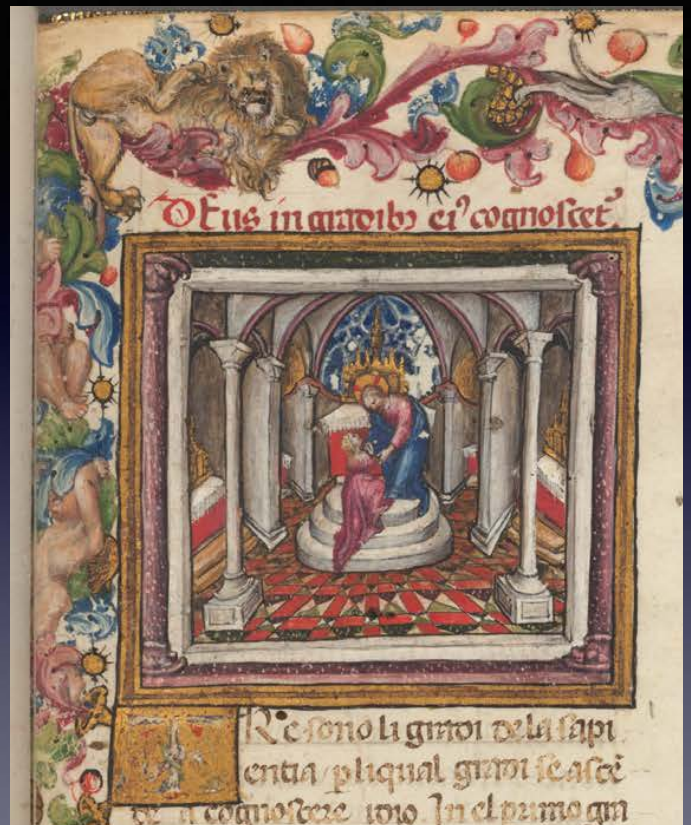 DEus in gradibꝫ ei⁹ cognoscet᷑
TRe sono li gradi dela sapi
entia / p liqual gradi se ascē
de a cognoscere idio. In el primo gra